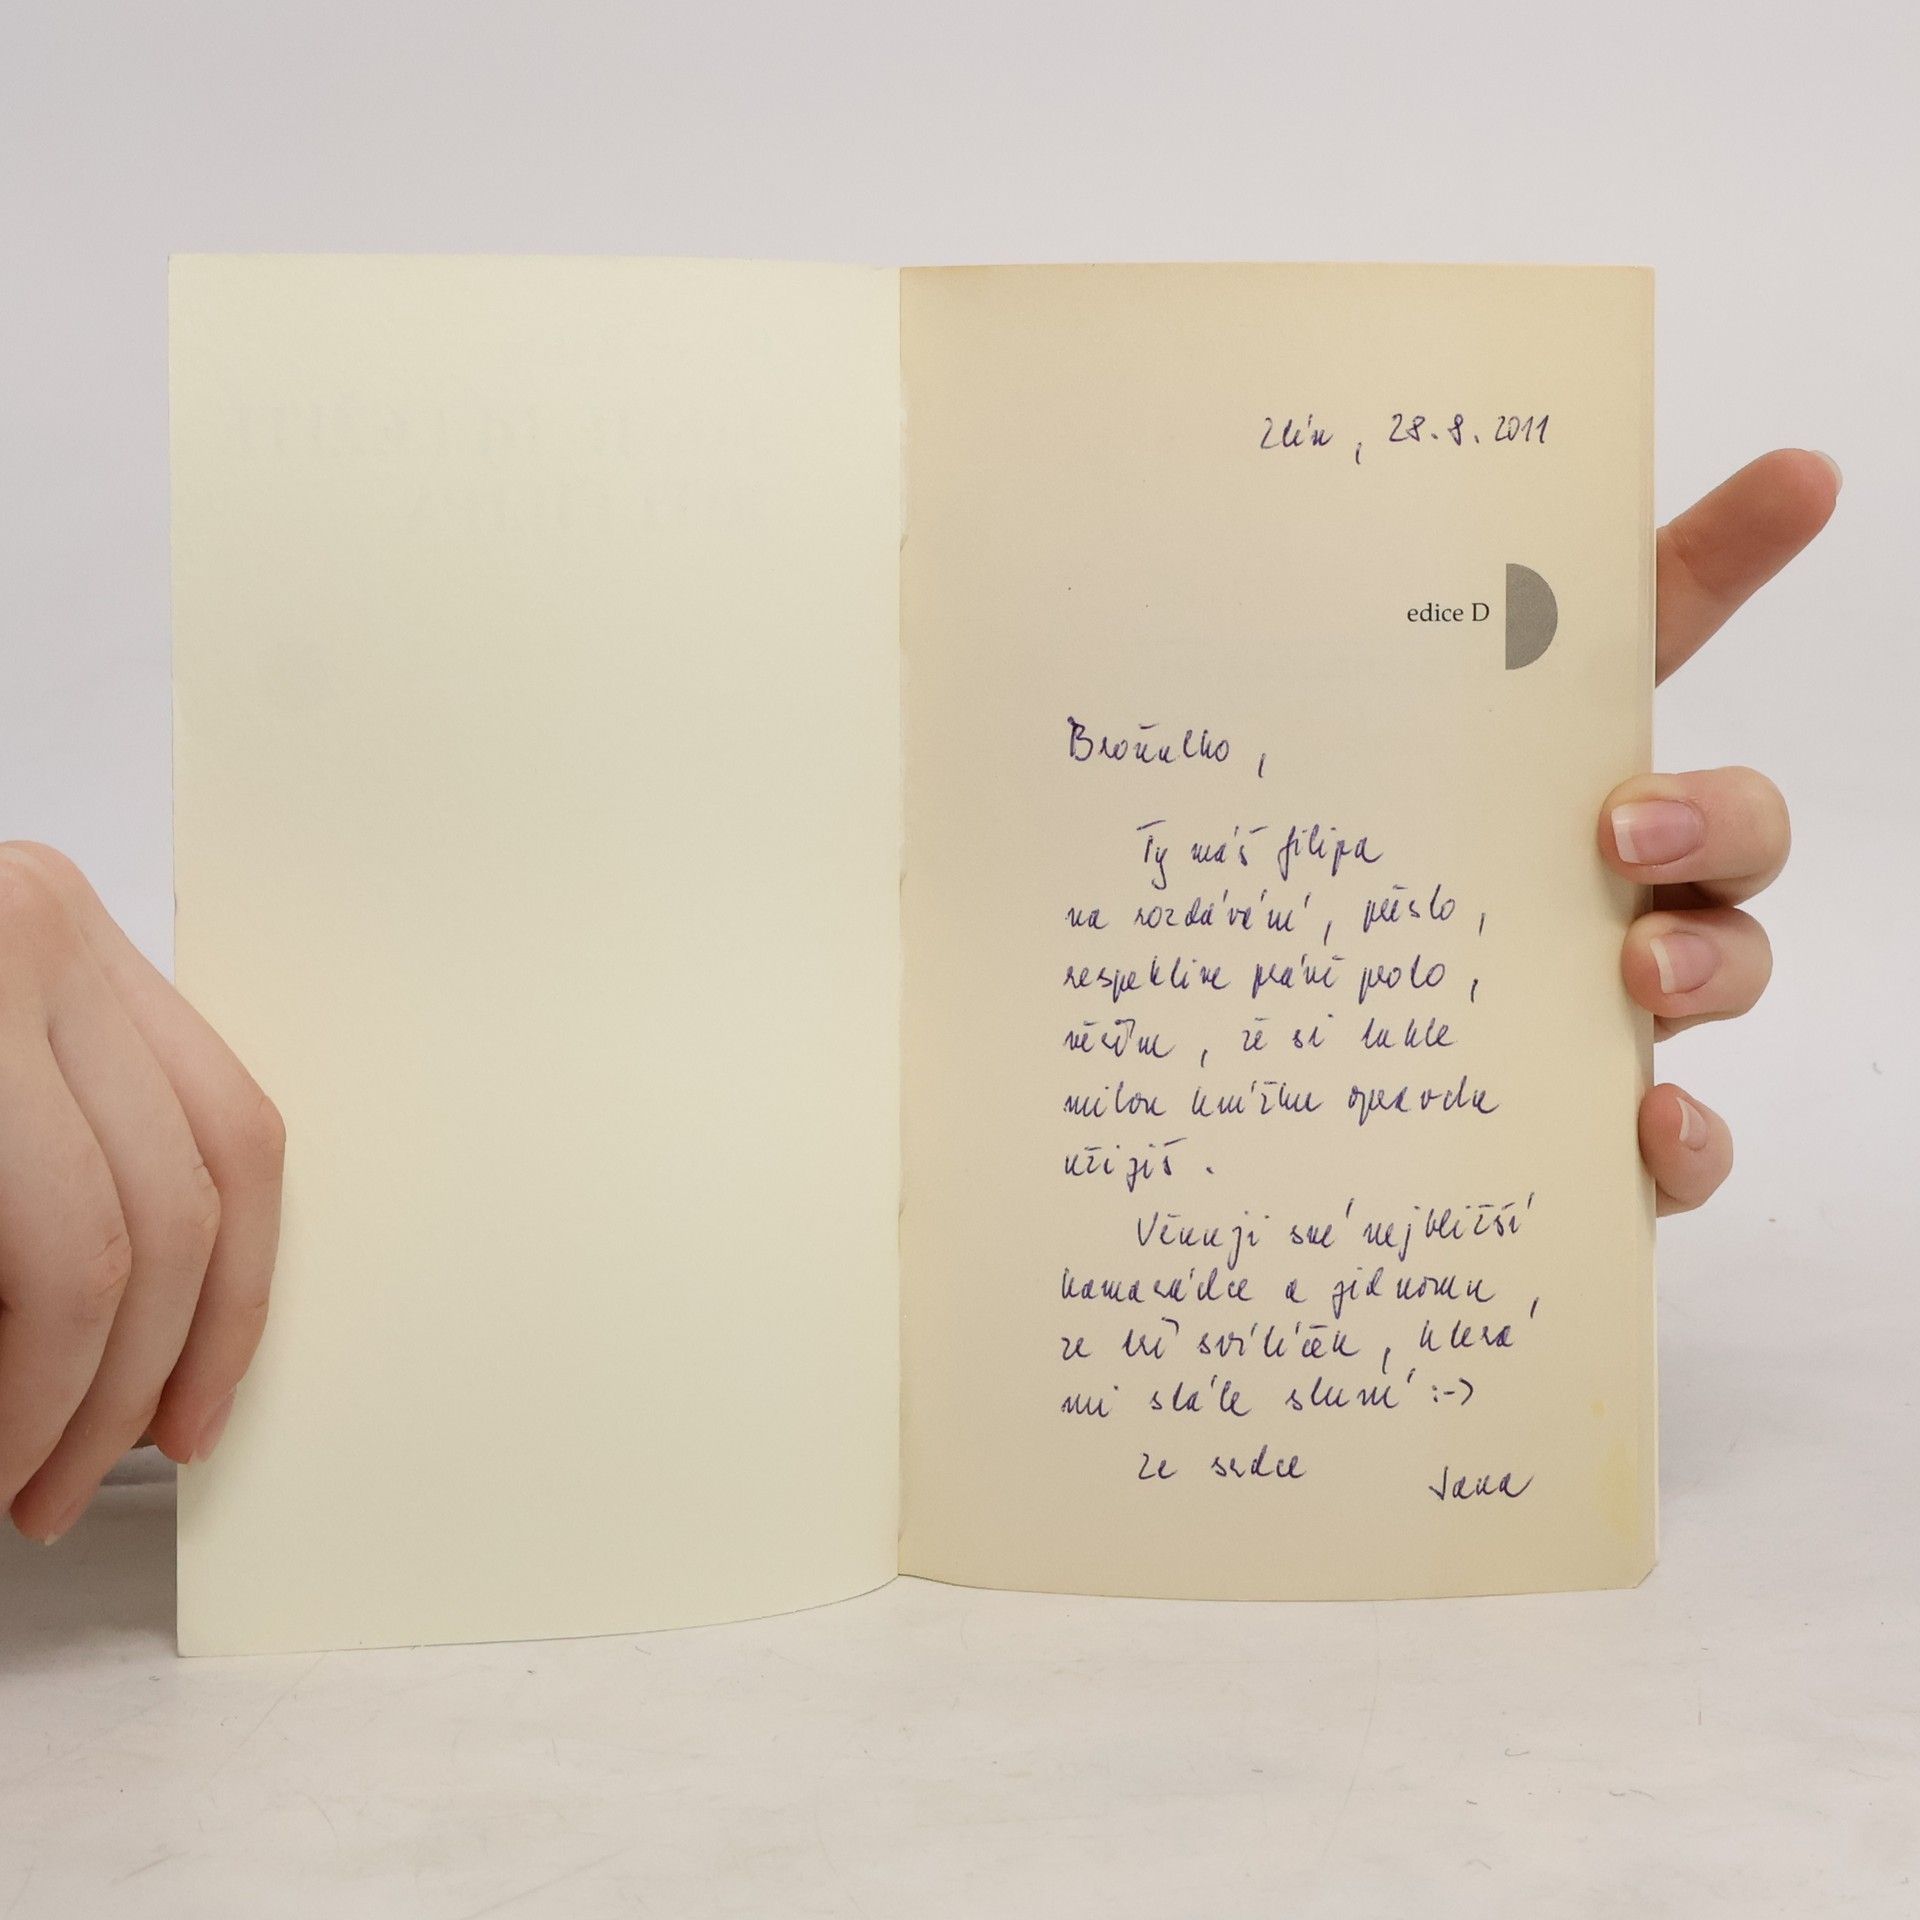 Zlín, 28.8.2011
edice D
Broňulko,
Ty máš filipa
na rozdávání, přesto,
respektive právě proto,
věřím, že si tuhle
milou knížku opravdu
užiješ.
Věnuji své nejbližší
kamarádce a jednomu
ze tří svítíček, která
mi stále sluní :-)
Ze srdce
Jana